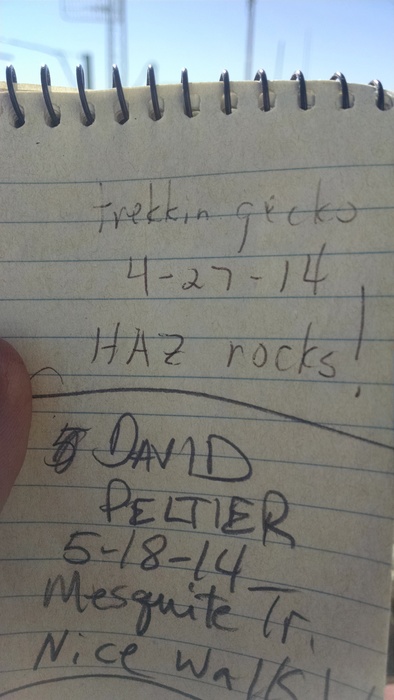 trekkin gecko
4-27-14
HAZ rocks!
DAVID
PELTIER
5-18-14
Mesquite Tr.
Nice Walk!